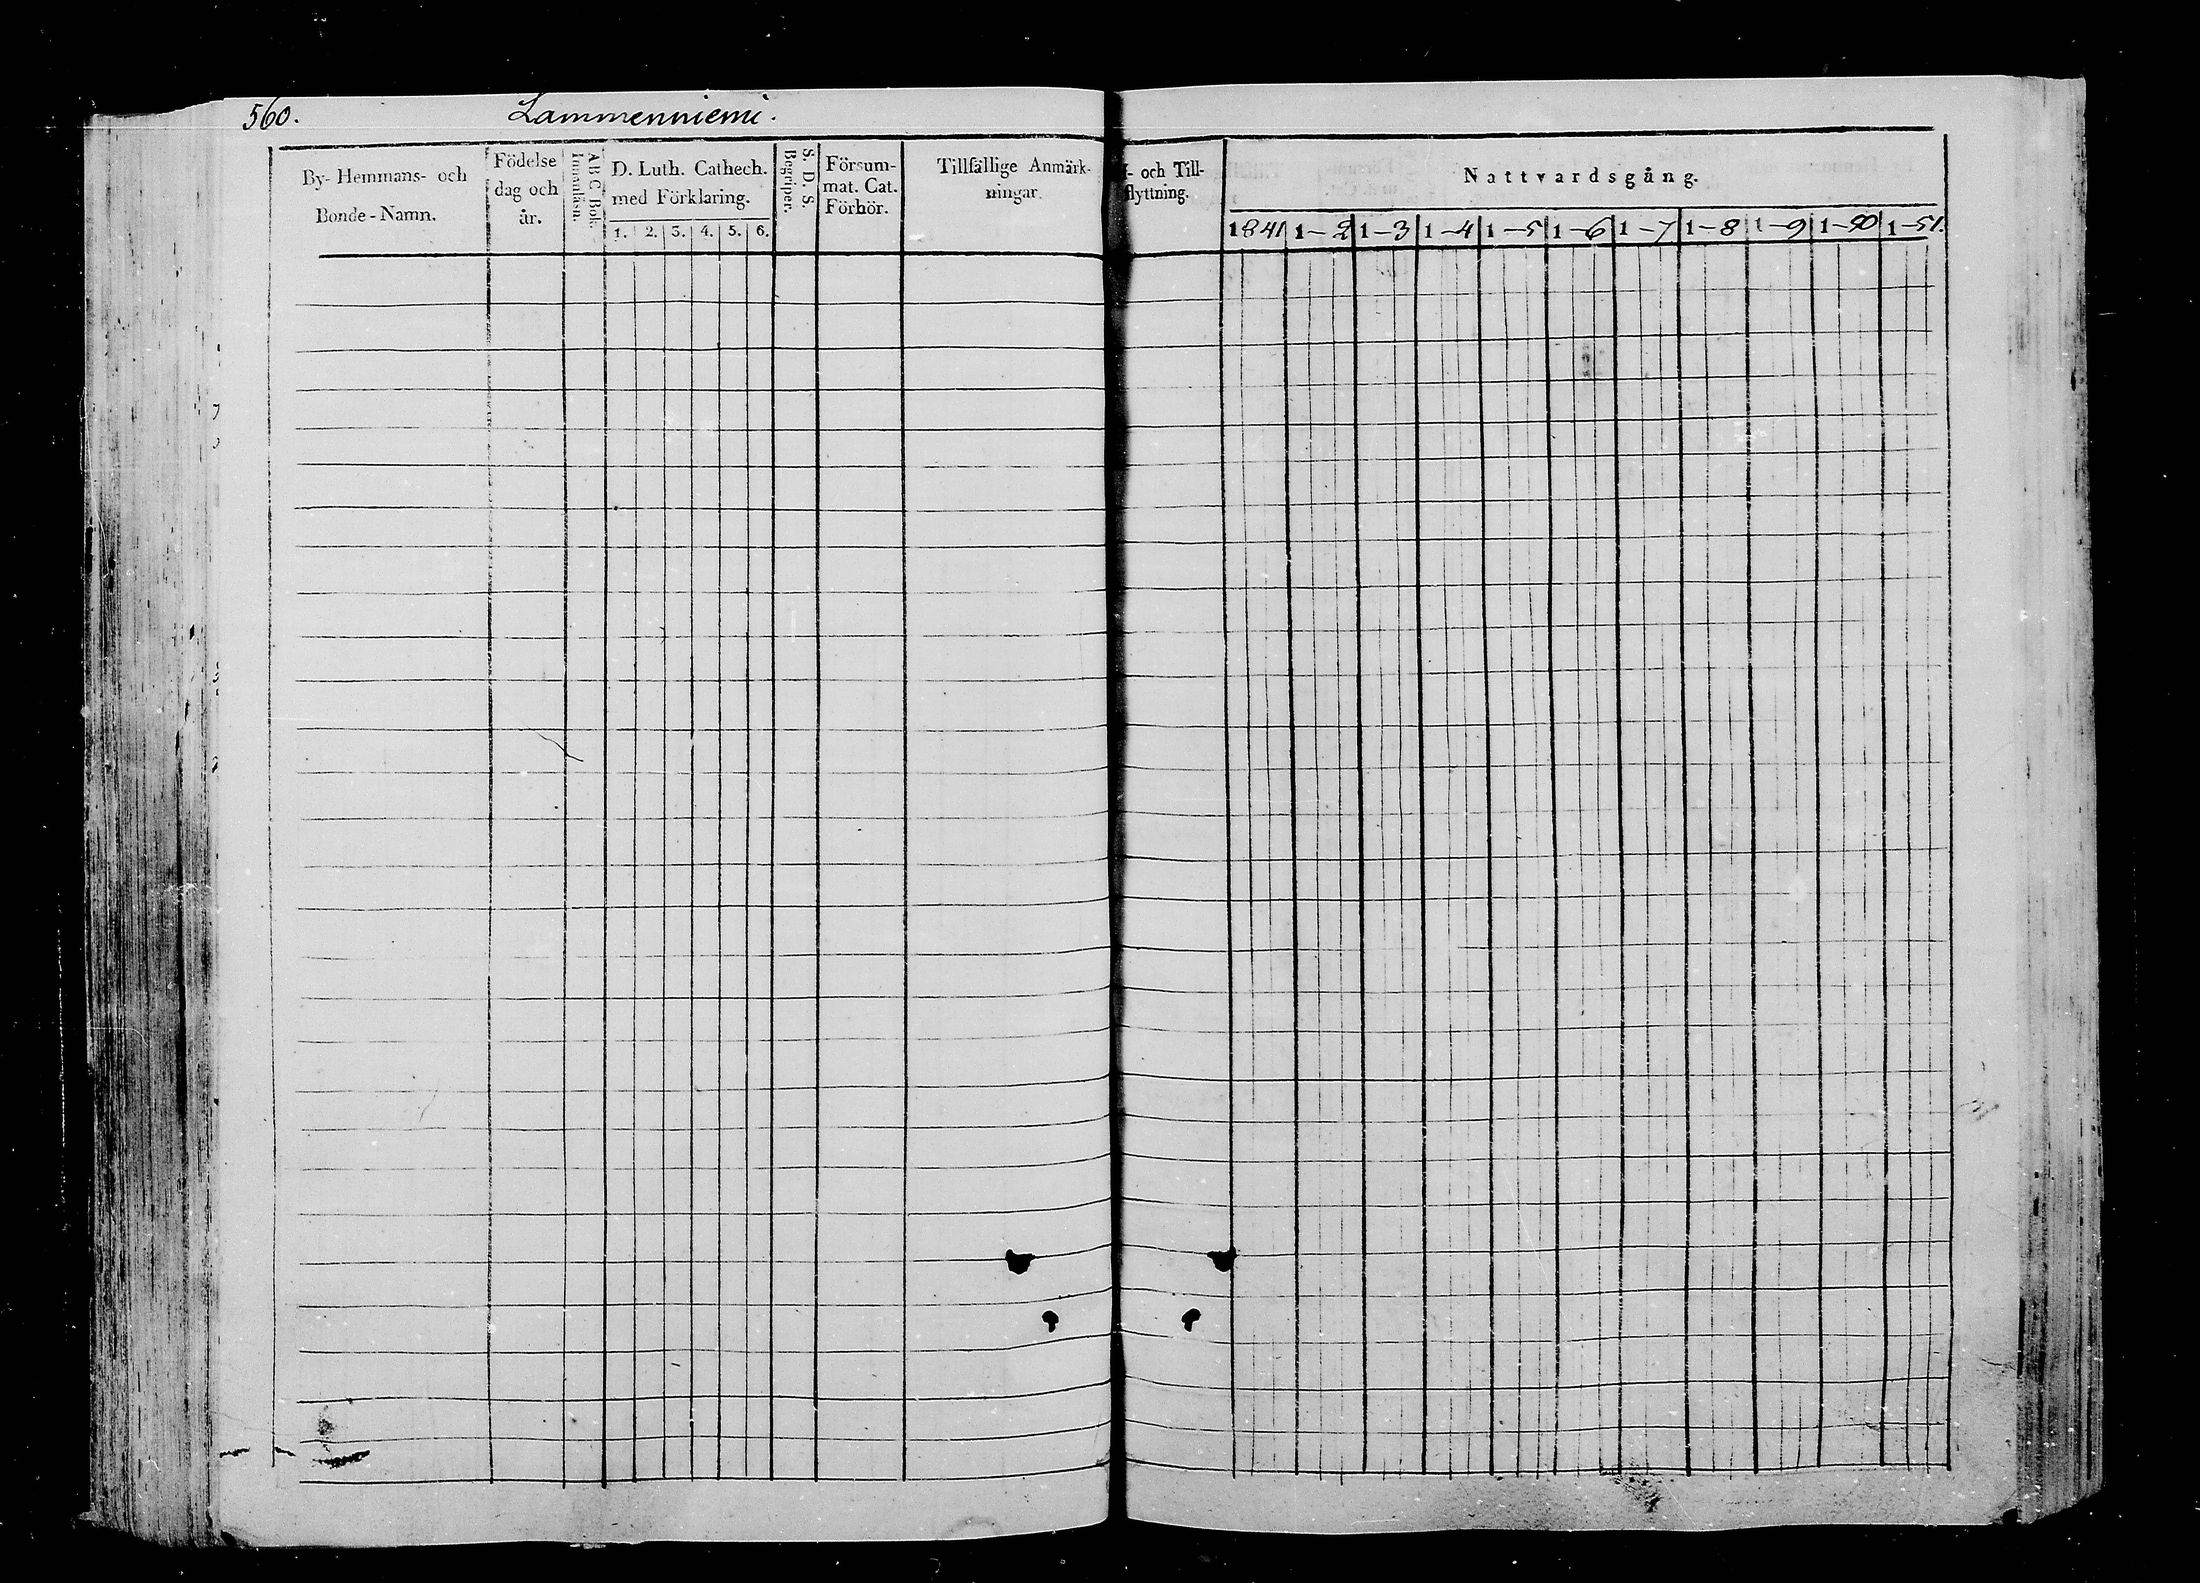 560. Lammenniemi.
By- Hemmans- och
Bonde-Namn.
Födelse
dag och
år.
A B C Bok.
Innanläsn.
D. Luth. Cathech.
med Förklaring.
1. 2. 3. 4. 5. 6.
S. D. S.
Begriper.
Försum-
mat. Cat.
Förhör.
Tillfällige Anmärk-
ningar.
- och Till-
flyttning.
Nattvardsgång.
1841 1-2 1-3 1-4 1-5 1-6 1-7 1-8 1-9 1-50 1-51.